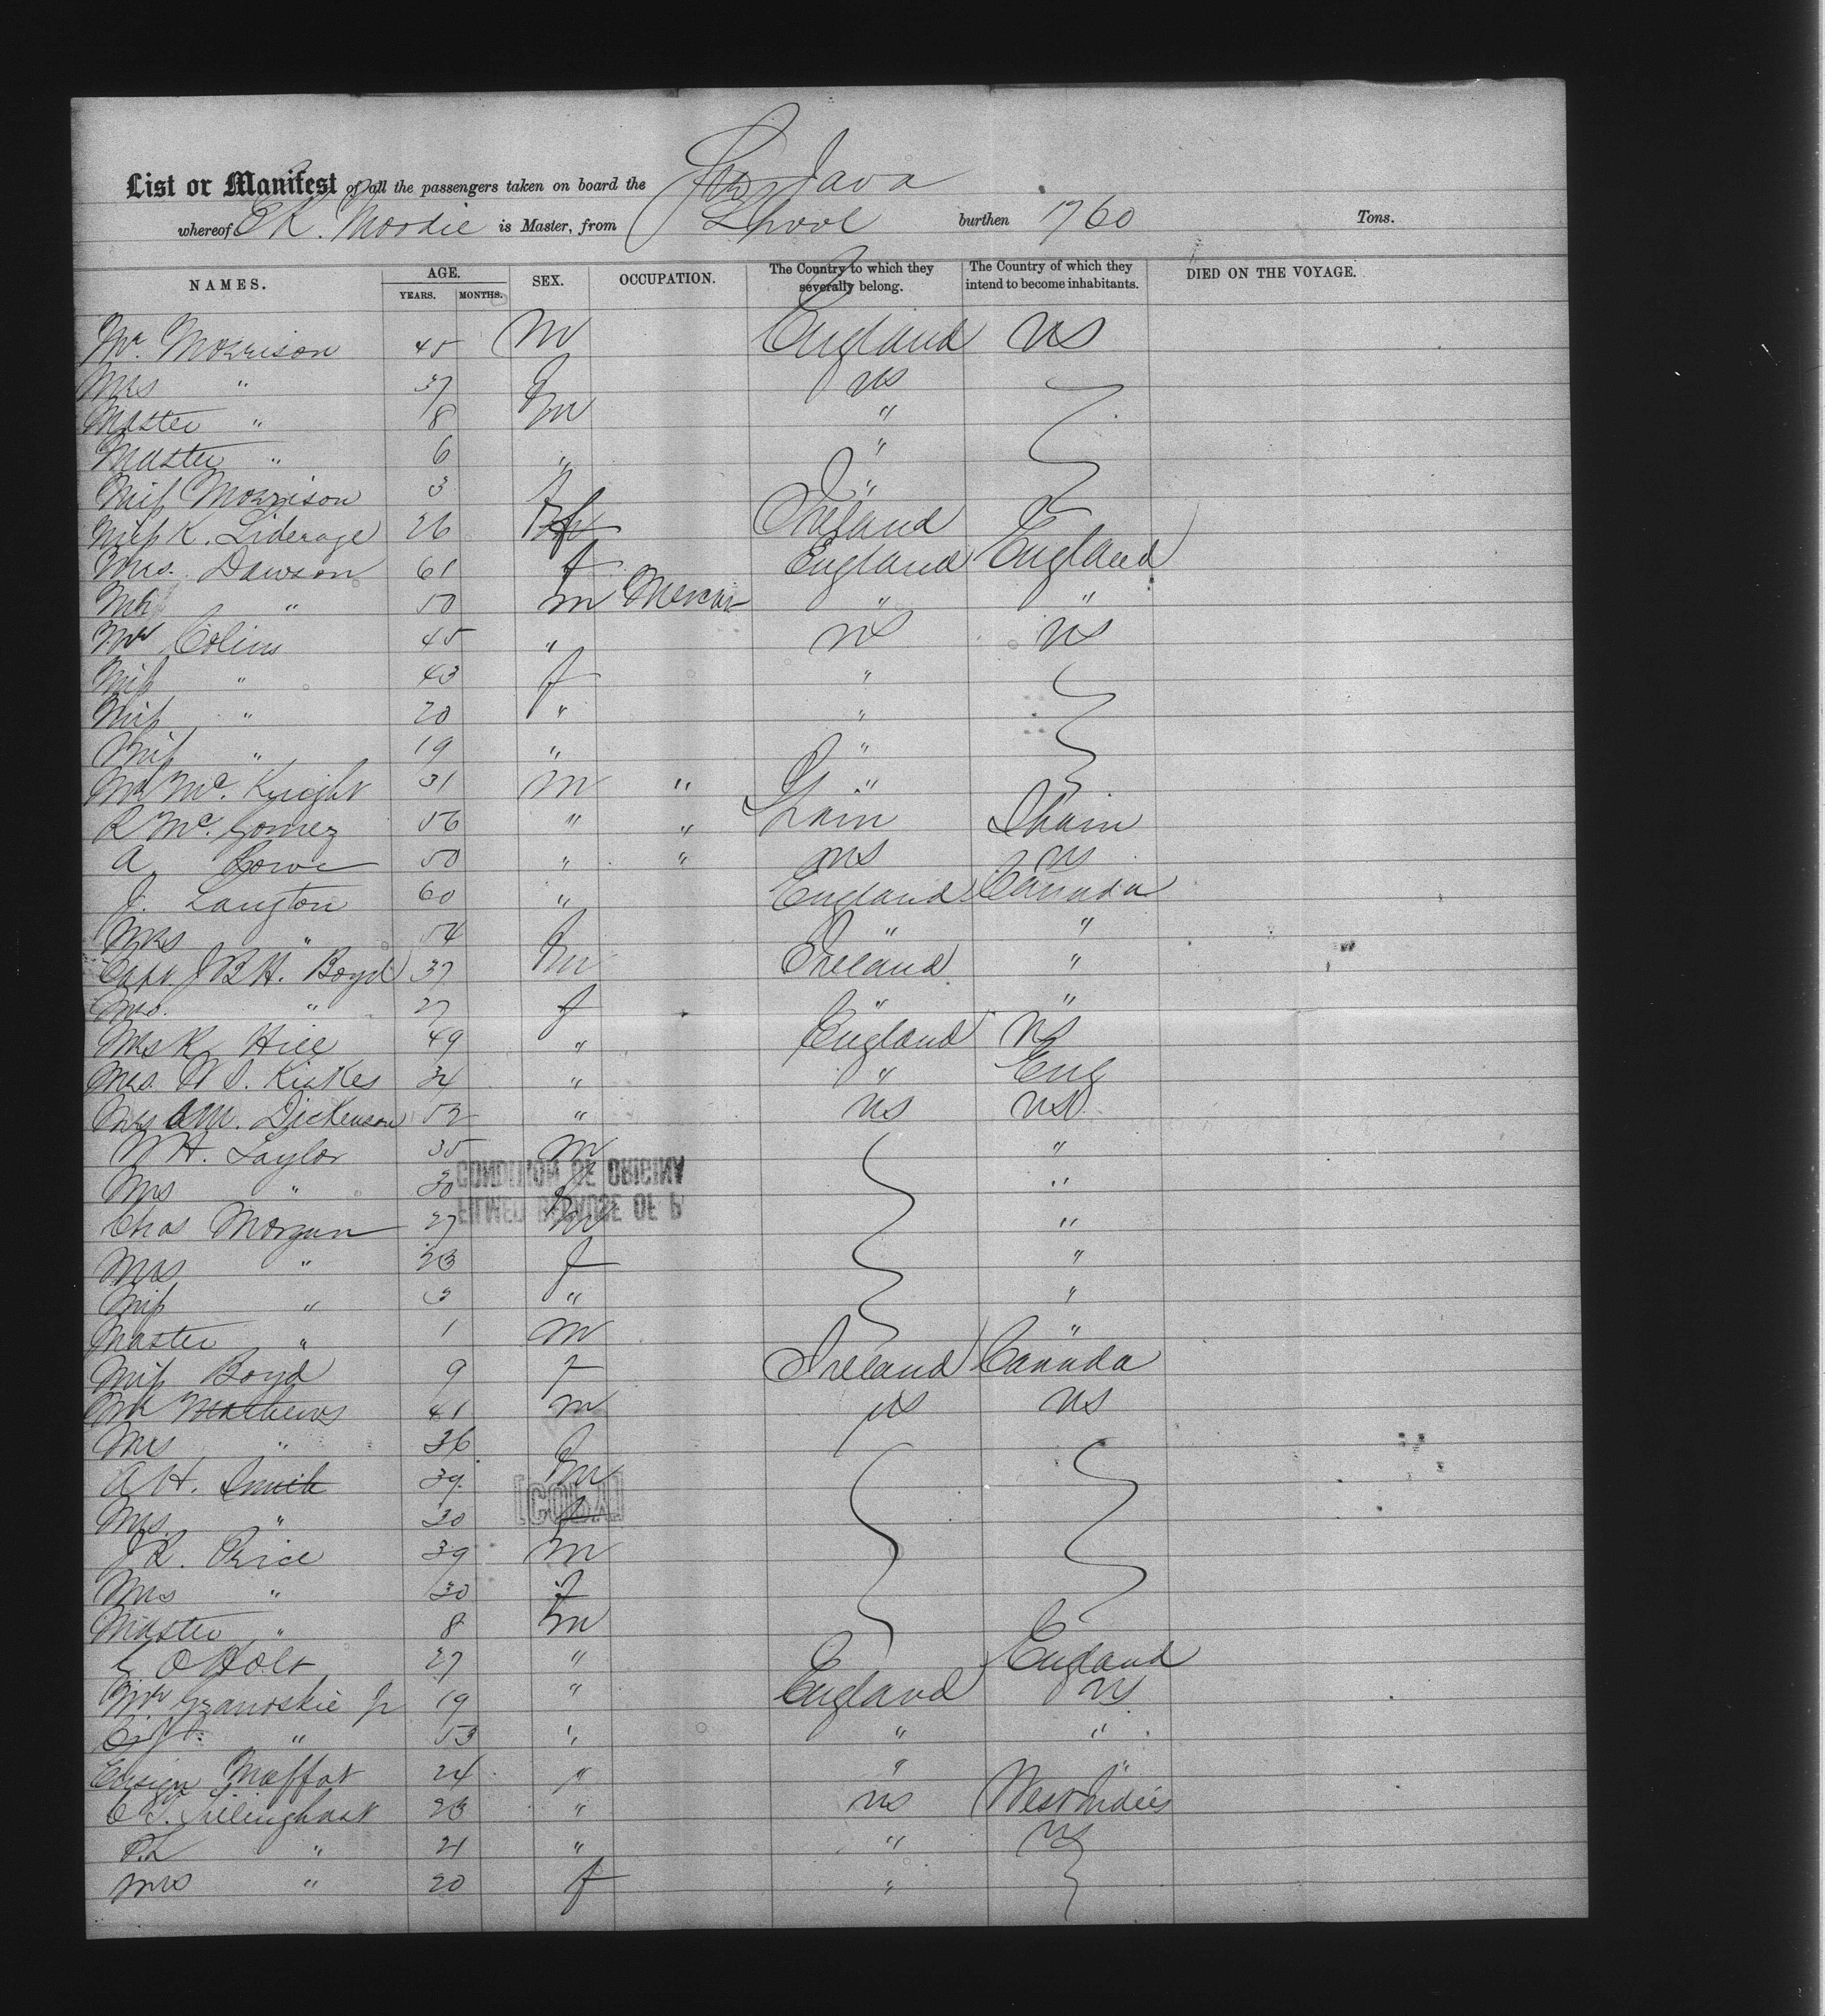 List or Manifest of all the passengers taken on board the Str Java
whereof E R. Moodie is Master, from Lpool burthen 1760 Tons.
NAMES. AGE. YEARS. MONTHS. SEX. OCCUPATION. The Country to which they severally belong. The Country of which they intend to become inhabitants. DIED ON THE VOYAGE.
Mr. Morrison 45 M England US
Mrs " 37 f US
Master " 8 m "
Master " 6 " "
Miss Morrison 3 f "
Miss K. 26 f Ireland
Mrs. Dawson 61 f England England
Mr " 50 m " "
Mr Colins 45 " US US
Miss " 43 f "
Miss " 20 " "
Miss " 19 " "
Mr Mc. Knight 31 m " "
R Mc. Gomez 56 " " Spain Spain
A Lowe 50 " " US US
J. Langton 60 " England Canada
Mrs " 54 f " "
Capt. J B H. Boyd 37 m Ireland "
Mrs. " 27 f " "
Mrs R Hill 49 " England US
Mrs. 34 " " Eng
M. Dickenson 52 " US US
W H. Taylor 35 m "
Mrs " 30 f "
Chas Morgan 27 m "
Mrs " 23 f "
Miss " 3 " "
Master " 1 m "
Miss Boyd 9 f Ireland Canada
Mr Mathews 41 m US US
Mrs " 36 f
A H. Smith 39 m
Mrs. " 30 f
J R. Price 39 m
Mrs " 30 f
Master " 8 m
Holt 27 " England
Mr Jr 19 " England US
" 53 " " "
Ensign Moffat 24 " " "
C T. Tillinghast 23 " US West Indies
" 21 " " US
Mrs " 20 f "